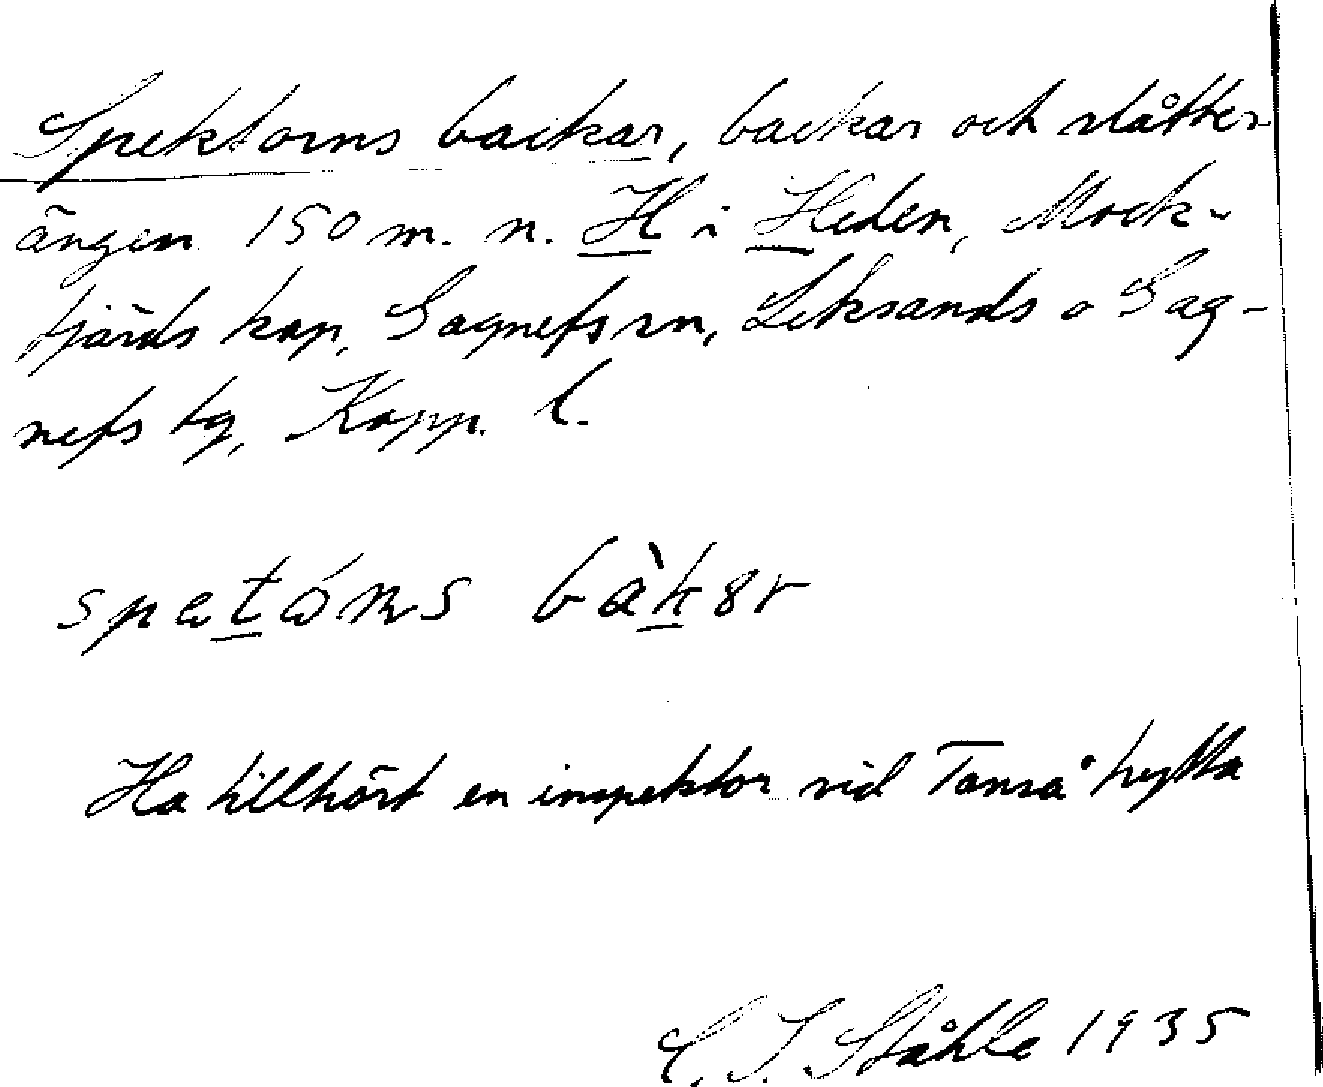 Spektorns backar, backar och slåtter
ängen 150 m. n. H i Heden, Mock-
fjärds kap, Gagnefs sn, Leksands o Gag-
nefs tg, Kopp. l.
spetóns bàkar
Ha tillhört en inspektor vid Tansåhytta
C. I. Ståhle 1935